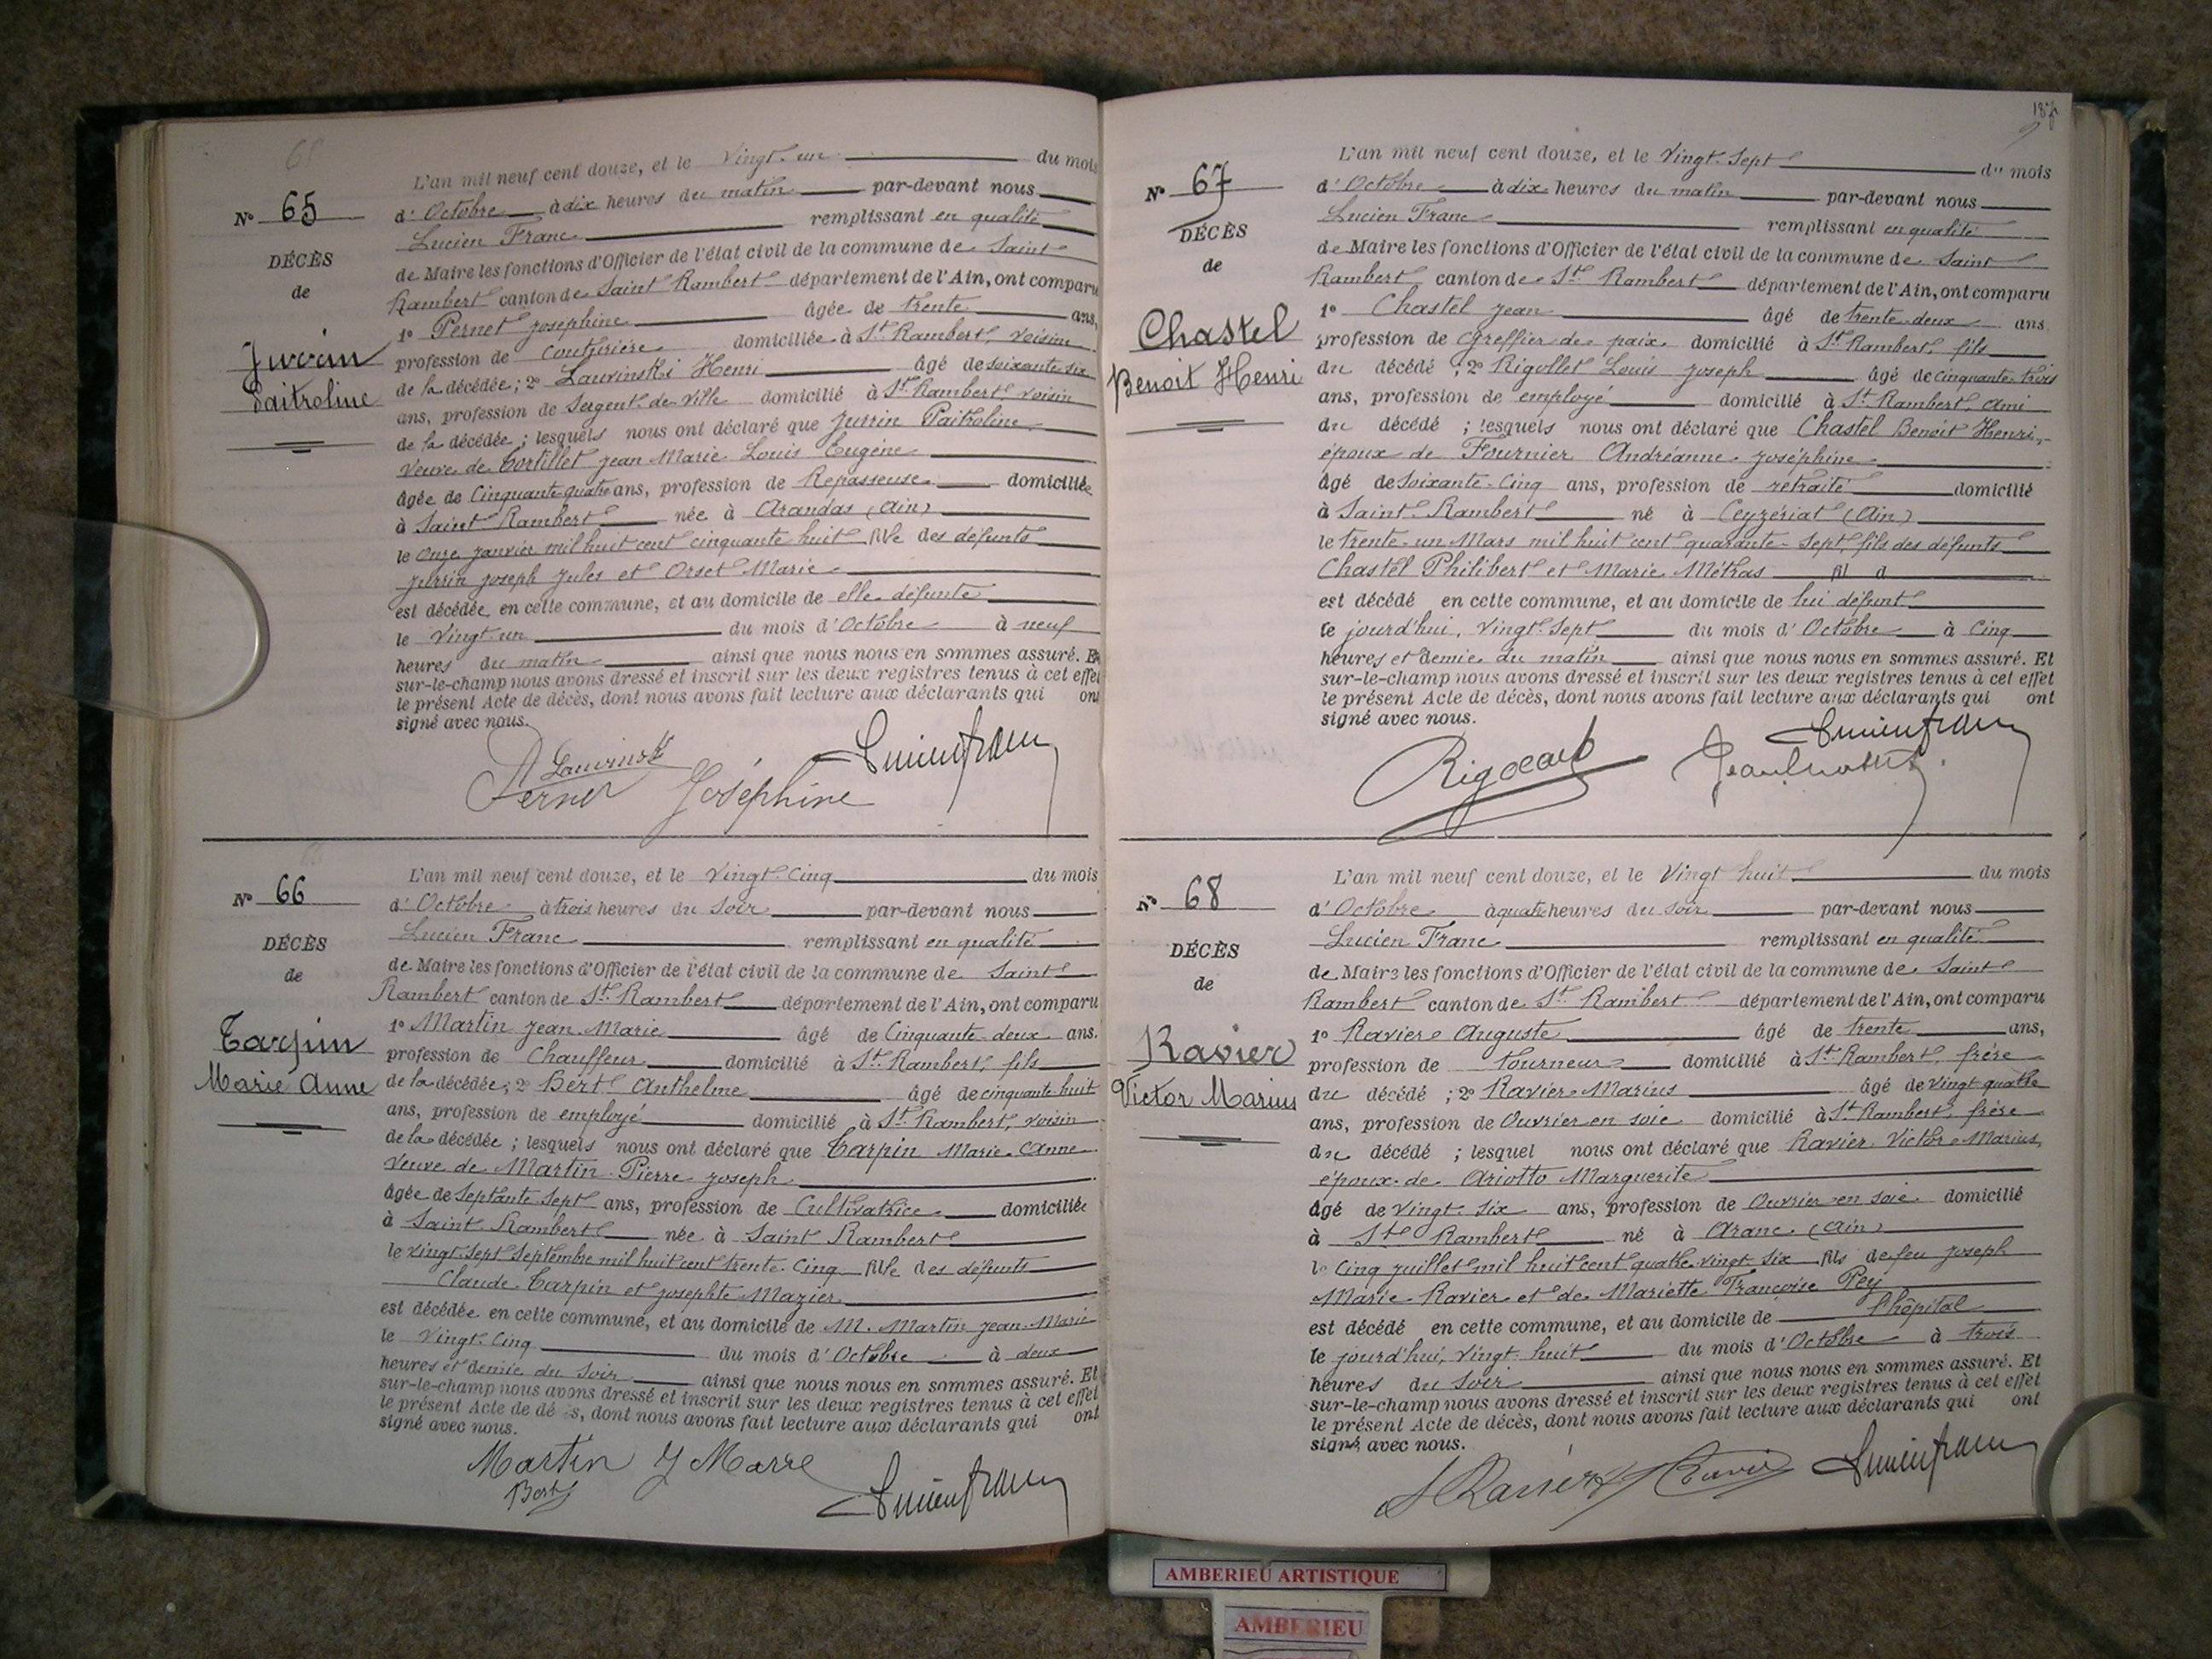 N° 65
DÉCÈS
de
Juvrin
Paitroline
L'an mil neuf cent douze, et le Vingt-un du mois
d'Octobre à dix heures du matin par-devant nous
Lucien Franc remplissant en qualité
de Maire les fonctions d'Officier de l'état civil de la commune de Saint
Rambert canton de Saint Rambert département de l'Ain, ont comparu
1° Pernet Joséphine âgée de trente ans,
profession de Couturière domiciliée à St Rambert, voisine
de la décédée ; 2° Lauvinski Henri âgé de soixante-six
ans, profession de Sergent de Ville domicilié à St Rambert, voisin
de la décédée ; lesquels nous ont déclaré que Juvrin Paitroline
Veuve de Tortillet Jean Marie Louis Eugène
âgée de Cinquante quatre ans, profession de Repasseuse domiciliée
à Saint Rambert née à Arandas (Ain)
le onze janvier mil huit cent cinquante huit fille des défunts
Juvrin Joseph Jules et Orset Marie
est décédée en cette commune, et au domicile de elle défunte
le Vingt-un du mois d'Octobre à neuf
heures du matin ainsi que nous nous en sommes assuré. Et
sur-le-champ nous avons dressé et inscrit sur les deux registres tenus à cet effet
le présent Acte de décès, dont nous avons fait lecture aux déclarants qui ont
signé avec nous.
Lauvinski
Pernet Joséphine
N° 66
DÉCÈS
de
Tarpin
Marie Anne
L'an mil neuf cent douze, et le Vingt-Cinq du mois
d'Octobre à trois heures du Soir par-devant nous
Lucien Franc remplissant en qualité
de Maire les fonctions d'Officier de l'état civil de la commune de Saint
Rambert canton de St Rambert département de l'Ain, ont comparu
1° Martin Jean Marie âgé de Cinquante-deux ans.
profession de Chauffeur domicilié à St Rambert, fils
de la décédée ; 2° Bert Anthelme âgé de cinquante huit
ans, profession de employé domicilié à St Rambert, voisin
de la décédée ; lesquels nous ont déclaré que Tarpin Marie Anne
Veuve de Martin Pierre Joseph
âgée de Septante Sept ans, profession de Cultivatrice domiciliée
à Saint Rambert née à Saint Rambert
le vingt-sept Septembre mil huit cent trente-cinq fille des défunts
Claude Tarpin et Josephte Mazier
est décédée en cette commune, et au domicile de M. Martin Jean Marie
le Vingt-Cinq du mois d'Octobre à deux
heures et demie du Soir ainsi que nous nous en sommes assuré. Et
sur-le-champ nous avons dressé et inscrit sur les deux registres tenus à cet effet
le présent Acte de dé s, dont nous avons fait lecture aux déclarants qui ont
signé avec nous.
Martin J Marie
Bert
187
N° 67
DÉCÈS
de
Chastel
Benoit Henri
L'an mil neuf cent douze, et le Vingt-Sept du mois
d'Octobre à dix heures du matin par-devant nous
Lucien Franc remplissant en qualité
de Maire les fonctions d'Officier de l'état civil de la commune de Saint
Rambert canton de St Rambert département de l'Ain, ont comparu
1° Chastel Jean âgé de trente-deux ans
profession de Greffier de paix domicilié à St Rambert, fils
du décédé ; 2° Rigollet Louis Joseph âgé de cinquante-trois
ans, profession de employé domicilié à St Rambert, ami
du décédé ; lesquels nous ont déclaré que Chastel Benoit Henri,
époux de Fournier Andréanne Joséphine
âgé de Soixante-Cinq ans, profession de retraité domicilié
à Saint-Rambert né à Ceyzériat (Ain)
le trente-un Mars mil huit cent quarante-Sept, fils des défunts
Chastel Philibert et Marie Métras fil d
est décédé en cette commune, et au domicile de lui défunt
le jourd'hui, Vingt-Sept du mois d'Octobre à Cinq
heures et demie du matin ainsi que nous nous en sommes assuré. Et
sur-le-champ nous avons dressé et inscrit sur les deux registres tenus à cet effet
le présent Acte de décès, dont nous avons fait lecture aux déclarants qui ont
signé avec nous.
N° 68
DÉCÈS
de
Ravier
Victor Marius
L'an mil neuf cent douze, et le Vingt huit du mois
d'Octobre à quatre heures du soir par-devant nous
Lucien Franc remplissant en qualité
de Maire les fonctions d'Officier de l'état civil de la commune de Saint
Rambert canton de St Rambert département de l'Ain, ont comparu
1° Ravier Auguste âgé de trente ans,
profession de tourneur domicilié à St Rambert, frère
du décédé ; 2° Ravier Marius âgé de vingt quatre
ans, profession de Ouvrier en soie domicilié à St Rambert, frère
du décédé ; lesquel nous ont déclaré que Ravier Victor Marius,
époux de Ariotto Marguerite
âgé de Vingt-Six ans, profession de Ouvrier en soie domicilié
à St Rambert né à Aranc (Ain)
le Cinq juillet mil huit cent quatre-vingt-Six fils de feu Joseph
Marie Ravier et de Mariette Françoise Pey
est décédé en cette commune, et au domicile de l'hôpital
le jourd'hui, Vingt-huit du mois d'Octobre à trois
heures du Soir ainsi que nous nous en sommes assuré. Et
sur-le-champ nous avons dressé et inscrit sur les deux registres tenus à cet effet
le présent Acte de décès, dont nous avons fait lecture aux déclarants qui ont
signé avec nous.
AMBERIEU ARTISTIQUE
AMBERIEU